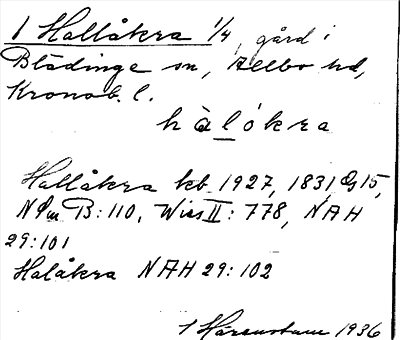 1 Hallåkra 1/4, gård i
Blädinge sn, Allbo hd,
Kronob. l.
hàlókra
Hallåkra kb 1927, 1831 Gs15,
NPm B: 110, Wies II: 778, NAH
29: 101
Halåkra NAH 29: 102
1 Härenstam 1936